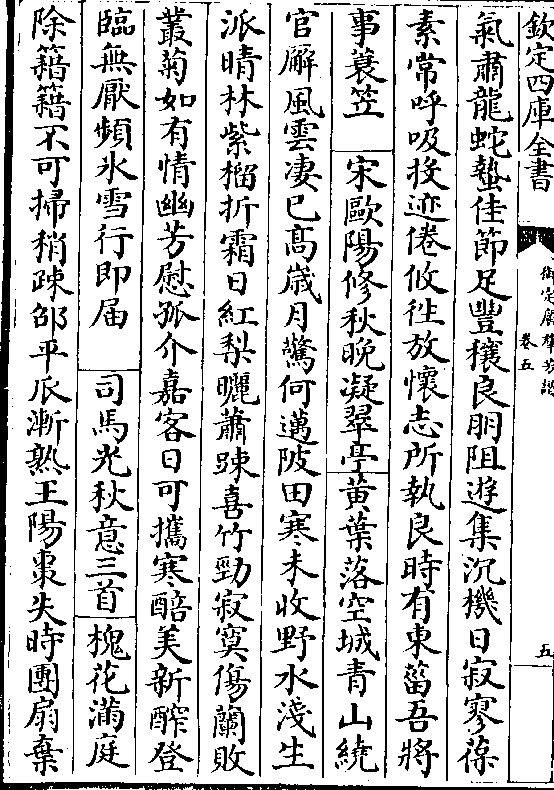 欽定四庫全書
卷五
五
氣肅龍蛇蟄佳節足豐穰良朋阻遊集沉機日寂寥葆
素常呼吸投迹倦攸徃放懷志所執良時有東菑吾將
事蓑笠 宋歐陽修秋晚凝翠亭 黄葉落空城青山繞
官廨風雲凄已髙歳月驚何邁陂田寒未收野水淺生
派晴林紫榴折霜日紅梨曬蕭踈喜竹勁寂寞傷蘭敗
叢菊如有情幽芳慰孤介嘉客日可攜寒醅美新醡登
臨無厭頻氷雪行即届 司馬光秋意三首 槐花滿庭
除籍籍不可掃稍疎邵平瓜漸熟王陽棗失時團扇棄